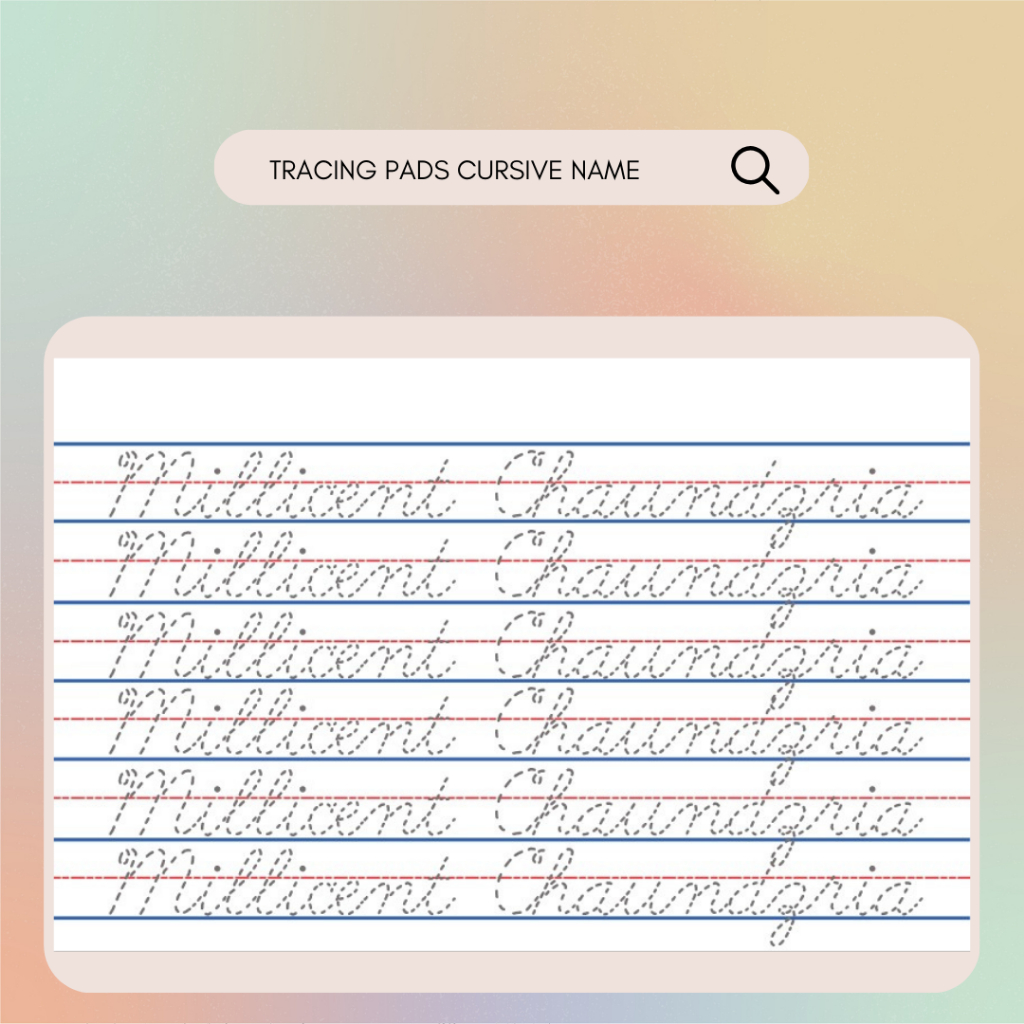 TRACING PADS CURSIVE NAME
Millicent Chaundgria
Millicent Chaundgria
Millicent Chaundgria
Millicent Chaundgria
Millicent Chaundgria
Millicent Chaundgria